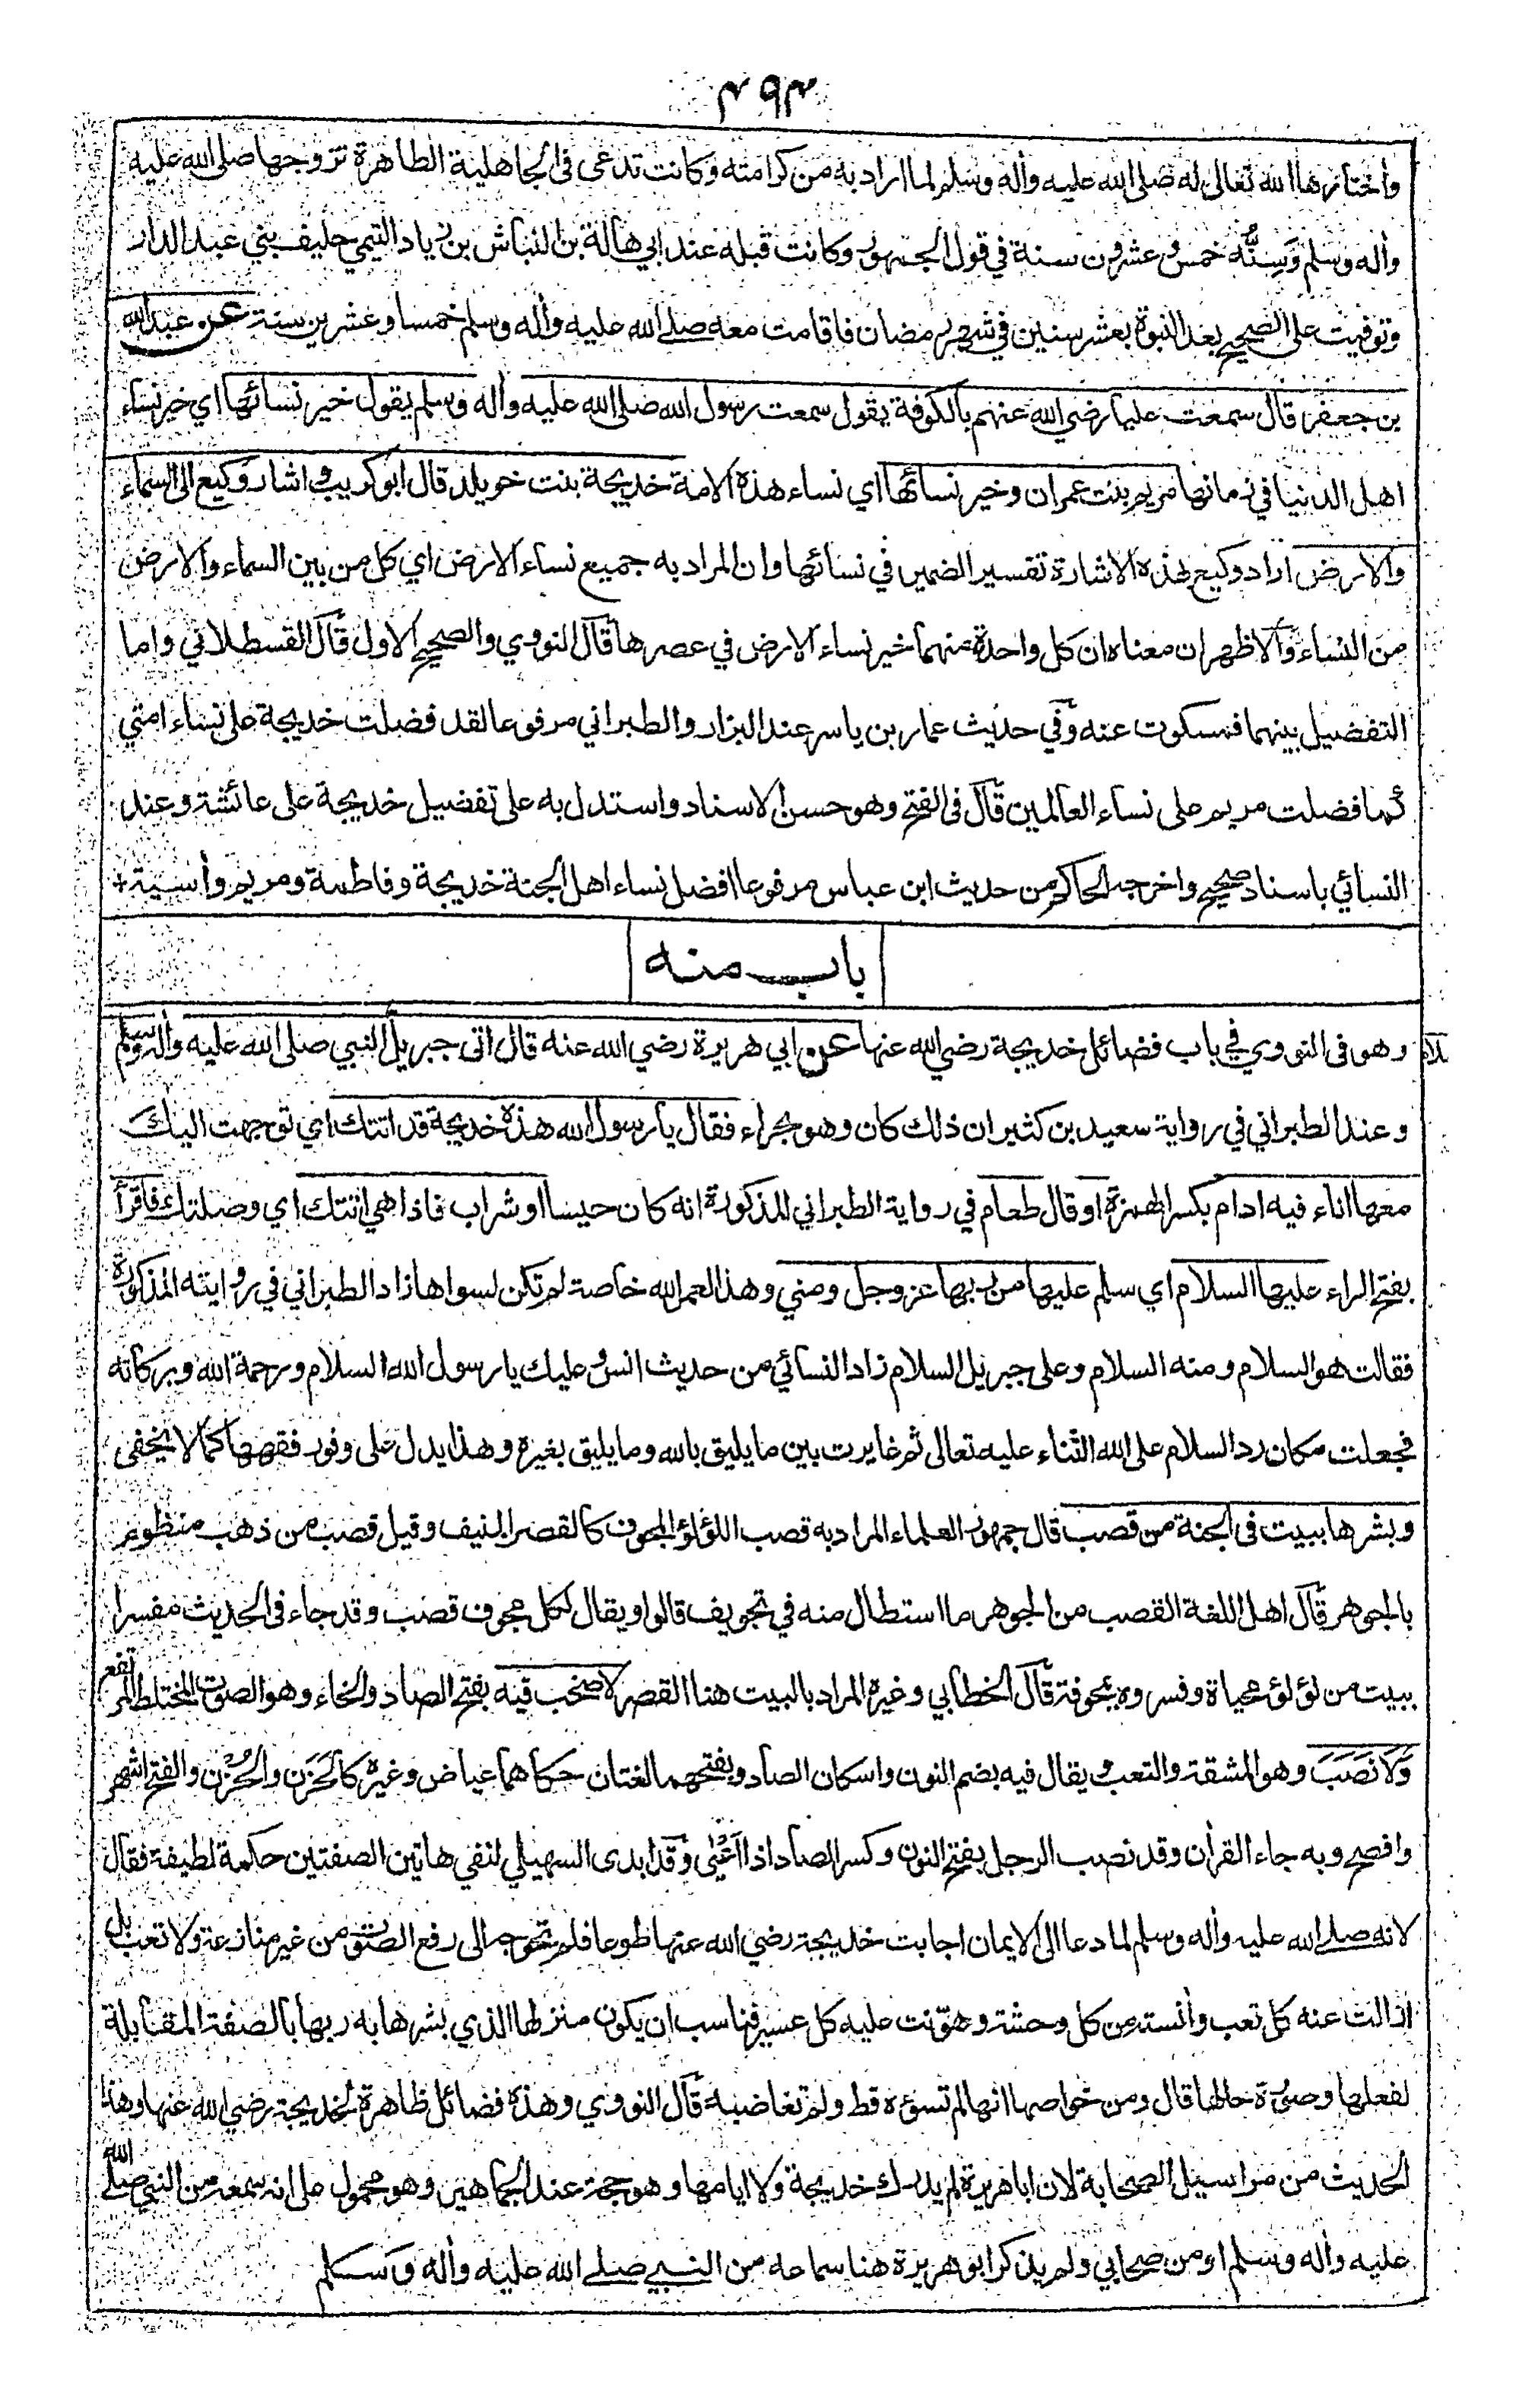 ٤٩٣
واختارها الله تعالى له صلى الله عليه وأله وسلم لما اراد به من كرامته وكانت تدعى فى الجاهلية الطاهرة تزوجها صلى الله عليه
وأله وسلم وَسِنُّه خمس وعشرون سنة في قول الجمهور وكانت قبله عند ابي هالة بن النباش بن زياد التيمي حليف بني عبد الدار
وتوفيت على الصحيح بعد النبوة بعشر سنين في شهر رمضان فاقامت معه صلے الله عليه وأله وسلم خمسا وعشرين سنة عن عبد الله
بن جعفر قال سمعت عليا رضي الله عنهم بالكوفة يقول سمعت رسول الله صلى الله عليه وأله وسلم يقول خير نسائها اي خير نساء
اهل الدنيا في زمانها مريم بنت عمران وخير نسائها اي نساء هذه الامة خديجة بنت خويلد قال ابو كريب واشار وكيع الى السماء
والارض اراد وكيع بهذه الاشارة تفسير الضمير في نسائها وان المراد به جميع نساء الارض اي كل من بين السماء والارض
من النساء والاظهر ان معناه ان كل واحدة منهما خير نساء الارض في عصرها قال النووي والصحيح الاول قال القسطلاني واما
التفضيل بينهما فمسكوت عنه وفي حديث عمار بن ياسر عند البزار والطبراني مرفوعا لقد فضلت خديجة على نساء امتي
كما فضلت مريم على نساء العالمين قال فى الفتح وهو حسن الاسناد واستدل به على تفضيل خديجة على عائشة وعند
النسائي باسناد صحيح واخرجه الحاكم من حديث ابن عباس مرفوعا افضل نساء اهل الجنة خديجة وفاطمة ومريم وأسية +
باب منه
وهو فى النووي في باب فضائل خديجة رضي الله عنها عن ابي هريرة رضي الله عنه قال اتى جبريل النبي صلى الله عليه وأله وسلم
وعند الطبراني في رواية سعيد بن كثير ان ذلك كان وهو بحراء فقال يا رسول الله هذه خديجة قد اتتك اي توجهت اليك
معها اناء فيه ادام بكسر الهمزة او قال طعام في رواية الطبراني المذكورة انه كان حيسا او شراب فاذا هي اتتك اي وصلتك فاقرأ
بفتح الراء عليها السلام اي سلم عليها من ربها عز وجل ومني وهذا لعمر الله خاصة لم تكن لسواها زاد الطبراني في روايته المذكورة
فقالت هو السلام ومنه السلام وعلى جبريل السلام زاد النسائي من حديث انس وعليك يا رسول الله السلام ورحمة الله وبركاته
فجعلت مكان رد السلام على الله الثناء عليه تعالى ثم غايرت بين ما يليق بالله وما يليق بغيره وهذا يدل على وفور فقهها كما لا يخفى
وبشرها ببيت فى الجنة من قصب قال جمهور العلماء المراد به قصب اللؤلؤ المجوف كالقصر المنيف وقيل قصب من ذهب منظوم
بالجوهر قال اهل اللغة القصب من الجوهر ما استطال منه في تجويف قالوا ويقال لكل مجوف قصب وقد جاء فى الحديث مفسرا
ببيت من لؤلؤ محياة وفسروه بمجوفة قال الخطابي وغيره المراد بالبيت هنا القصر لا صخب فيه بفتح الصاد والخاء وهو الصوت المختلط المرتفع
وَلَا نَصَبَ وهو المشقة والتعب ويقال فيه بضم النون واسكان الصاد وبفتحهما لغتان حكاهما عياض وغيره كالحَزَن والحُزْن والفتح اشهر
وافصح وبه جاء القرأن وقد نصب الرجل بفتح النون وكسر الصاد اذا اعيى وقد ابدى السهيلي لنفي هاتين الصفتين حكمة لطيفة فقال
لانه صلے الله عليه وأله وسلم لما دعا الى الايمان اجابت خديجة رضي الله عنها طوعا فلم تحوجه الى رفع الصوت من غير منازعة ولا تعب بل
ازالت عنه كل تعب وأنسته من كل وحشة وهوّنت عليه كل عسير فناسب ان يكون منزلها الذي بشرها به ربها بالصفة المقابلة
لفعلها وصورة حالها قال ومن خواصها انها لم تسؤه قط ولم تغاضبه قال النووي وهذه فضائل ظاهرة لخديجة رضي الله عنها وهذا
الحديث من مراسيل الصحابة لان ابا هريرة لم يدرك خديجة ولا ايامها وهو حجة عند الجماهير وهو محمول على انه سمعه من النبي صلے الله
عليه وأله وسلم او من صحابي ولم يذكر ابو هريرة هنا سماعه من النبي صلے الله عليه وأله وسلم